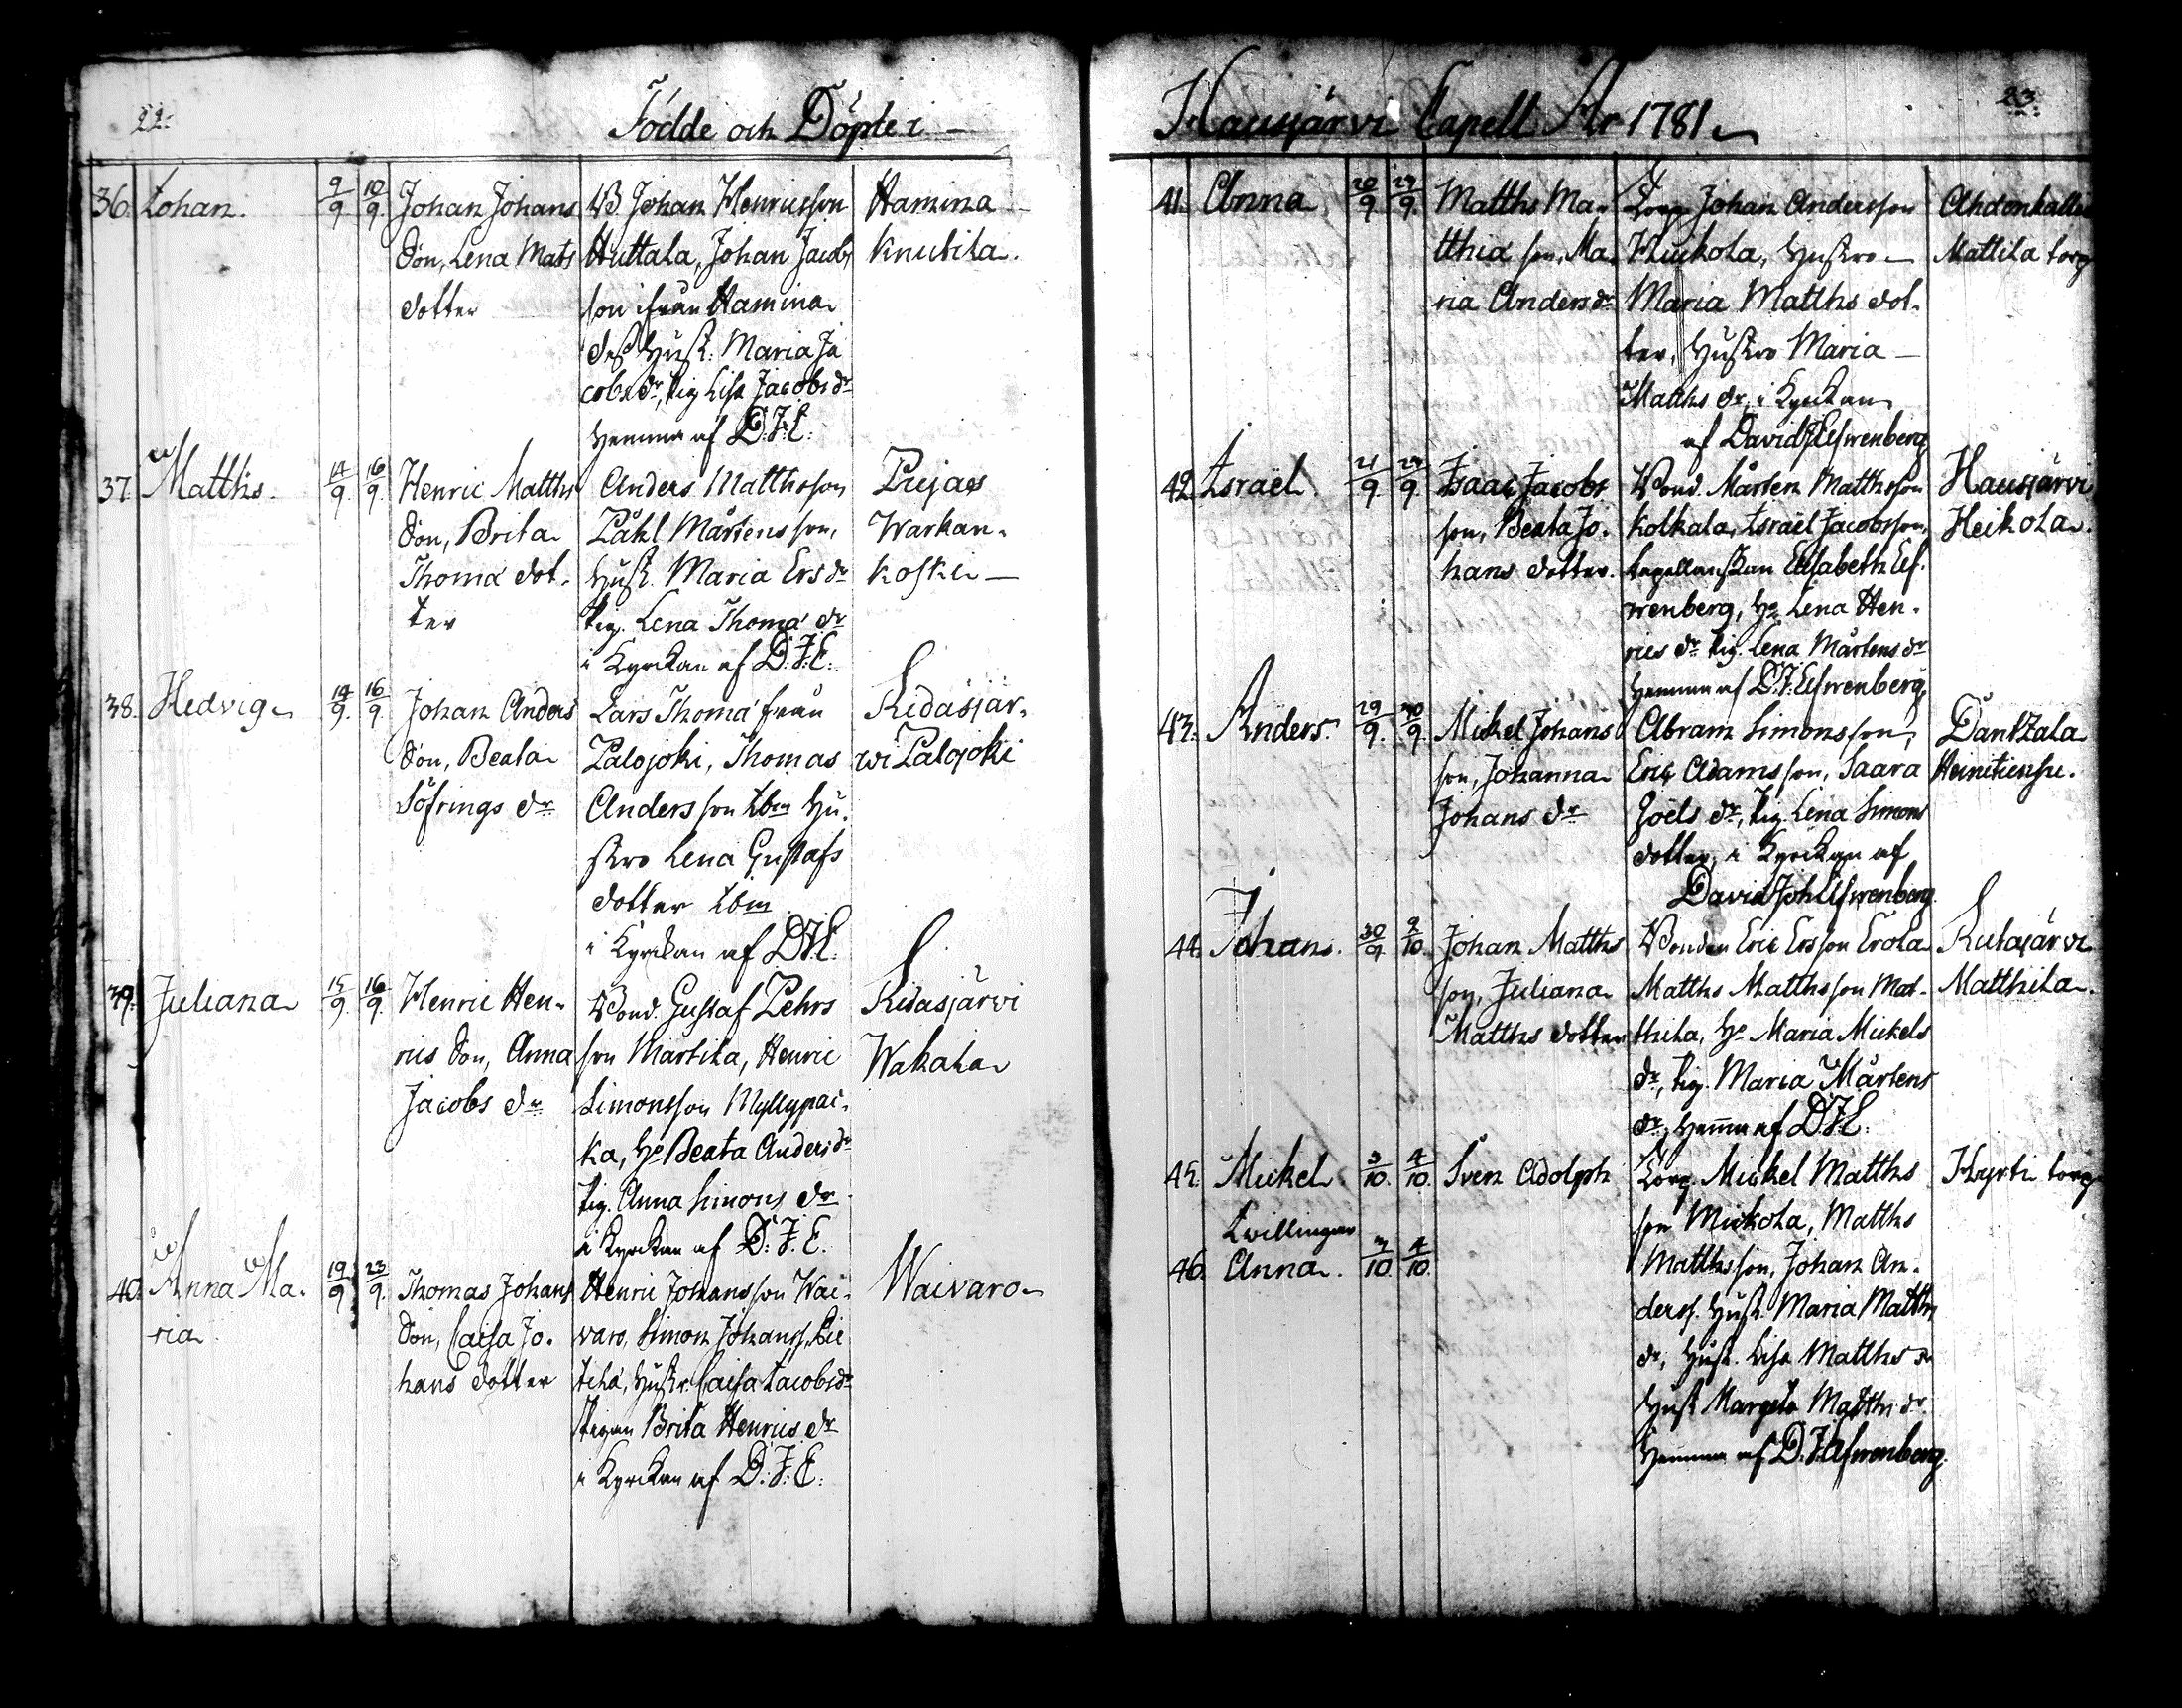 22.
Födde och Döpte i
36. Johan. 9/9 10/9
Johan Johans
Son, Lena Mats
dotter
B Johan Henricsson
Huttala, Johan Jacobs
son ifrån Hamina
dess Hust: Maria Ja
cobs dr, Pig Lisa Jacobs dr
Hemma af D. J. E:
Hamina
Knutila.
37. Matths. 14/9. 16/9.
Henric Matths
Son, Brita
Thomæ dot-
ter
Anders Matthsson
Påhl Mårtensson,
Hust. Maria Ers dr
Pig. Lena Thomæ dr
i Kyrckan af D: J: E:
Piejaes
Warkan-
koski
38. Hedvig 14/9. 16/9.
Johan Anders
Son, Beata
Söfrings dr
Lars Thomæ från
Palojoki, Thomas
Andersson Ibm Hu-
stro Lena Gustafs
dotter Ibm
i Kyrckan af D.J.E.
Ridasjär-
wi Palojoki
39. Juliana 15/9. 16/9.
Henric Hen-
rics Son, Anna
Jacobs dr
Bond. Gustaf Pehrs
son Martila, Henric
Simonsson Myllypai-
ka, Ho Beata Anders dr
Pig. Anna Simons dr
i Kyrckan af D: J. E.
Ridasjärvi
Wakala
40. Anna Ma-
ria 19/9 23/9.
Thomas Johans
Son, Caisa Jo-
hans dotter
Henric Johansson Wai-
varo, Simon Johanss. Lie
tilä, Hustr. Caisa Jacobs dr
Pigan Brita Henrics dr
i Kyrckan af D: J: E:
Waivaro
23.
Hausjärvi Capell År 1781
41. Anna 20/9. 29/9.
Matths Ma-
tthiæ son, Ma-
ria Anders dr
Torp. Johan Andersson
Kuckola, Hustro
Maria Matths dot-
ter, Hustro Maria
Matths dr, i Kyrckan
af David J Elfwenberg
Ahdenkallio
Mattila torp
42. Israël 21/9. 29/9.
Isaac Jacobs
son, Beata Jo-
hans dotter.
Bond. Mårten Matthsson
Kolkala, Israël Jacobsson,
Capellanskan Elisabeth Elf-
wenberg, Ho Lena Hen-
rics dr Pig. Lena Mårtens dr
Hemma af D.J. Elfwenberg
Hausjärvi
Heikola.
43. Anders. 29/9. 30/9.
Mickel Johans
son, Johanna
Johans dr
Abram Simonsson,
Eric Adamsson, Saara
Joëls dr, Pig. Lena Simons
dotter, i Kyrckan af
David Joh Elfwenberg
Dantzala
44. Johans. 30/9. 2/10.
Johan Matths
son, Juliana
Matths dotter
Bonden Eric Ersson Erola
Matths Matthsson Mat-
thila, Ho Maria Mickels
dr, Pig. Maria Mårtens
dr, Hemma af D.J.E.
Rutajärvi
Matthila.
45. Mickel 3/10. 4/10.
Tvillingar
46. Anna. 3/10. 4/10.
Sven Adolph
Torp. Mickel Matths
son Mickola, Matths
Matthsson, Johan An-
derss. Hust. Maria Matths
dr, Hust. Lisa Matths dr
Hust Margeta Matths dr.
Hemma af D. J. Elfwenberg.
Hyrti torp